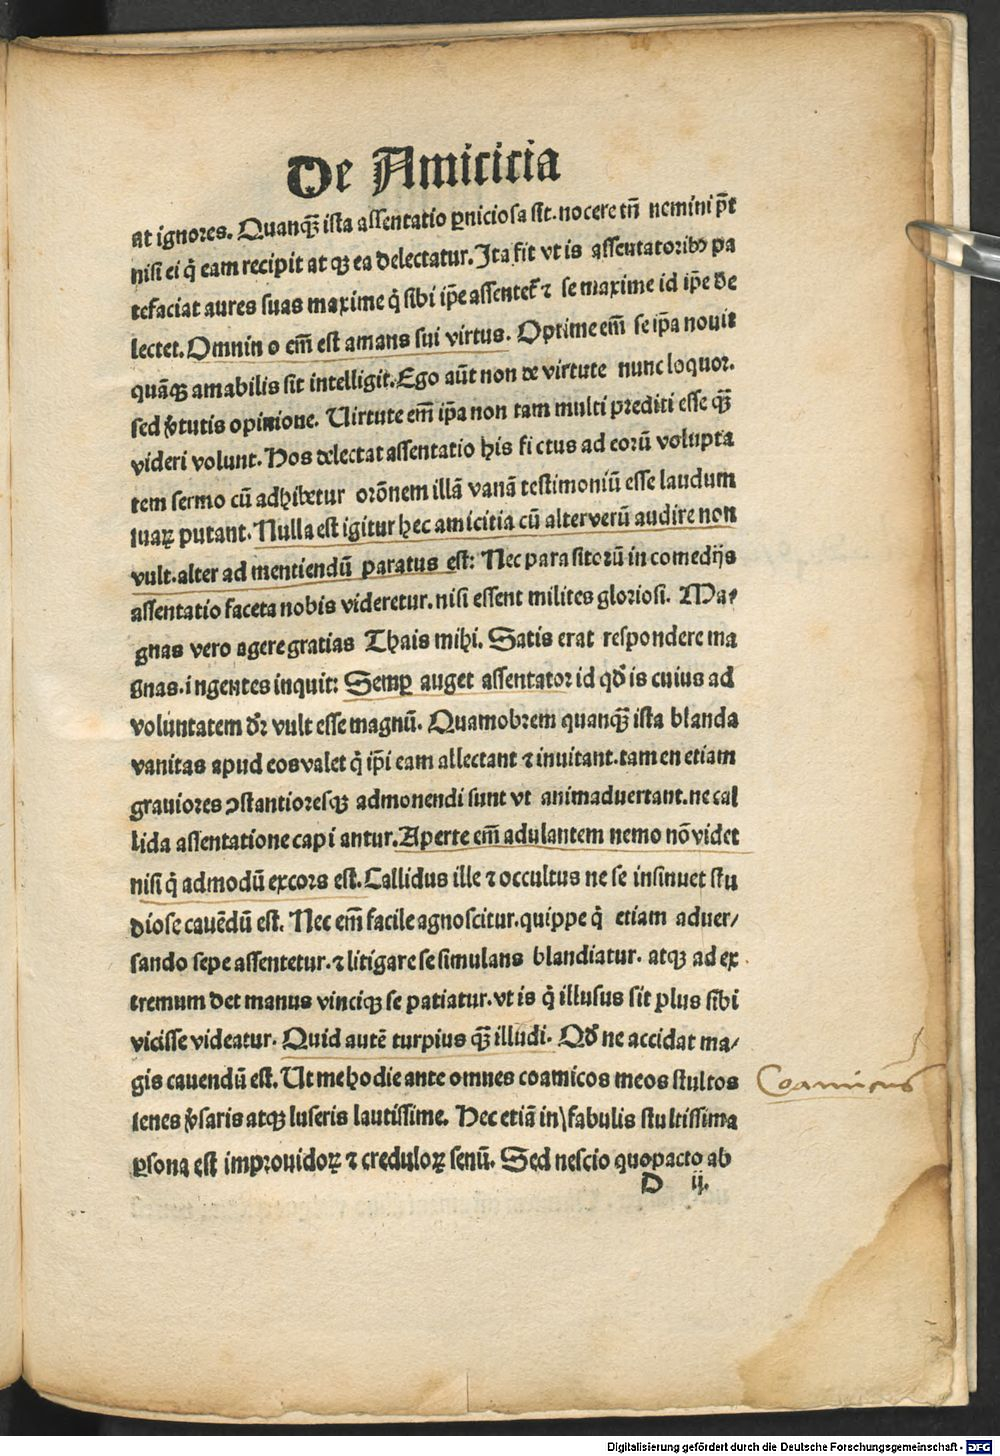 De Amicicia
at ignores. Quanqꝫ̄ ista assentatio ꝑniciosa sit. nocere tn̄ nemini pōt
nisi ei q̇ eam recipit at qꝫ ea delectatur. Ita fit vt is assentatoribꝰ pa
tefaciat aures suas maxime q̇ sibi ip̄e assentet᷑ ⁊ se maxime id ip̄e de
lectet. Omnin o em̄ est amans sui virtus. Optime em̄ se ip̄a nouit
quāqꝫ amabilis sit intelligit. Ego aūt non de virtute nunc loquor.
sed v̓tutis opinione. Uirtute em̄ ip̄a non tam multi prediti esse qꝫ̄
videri volunt. Hos delectat assentatio his fi ctus ad eorū volupta
tem sermo cū adhibetur orōnem illā vanā testimoniū esse laudum
suaꝝ putant. Nulla est igitur hec amicitia cū alterverū audire non
vult. alter ad mentiendū paratus est: Nec para sitorū in comedijs
assentatio faceta nobis videretur. nisi essent milites gloriosi. Ma⸗
gnas vero agere gratias Thais mihi. Satis erat respondere ma
gnas. in gentes inquit: Semꝑ auget assentator id qd̓ is cuius ad
voluntatem dr̄ vult esse magnū. Quamobrem quanqꝫ̄ ista blanda
vanitas apud eos valet q̇ ip̄i eam allectant ⁊ inuitant. tam en etiam
grauiores ꝯstantioresqꝫ admonendi sunt vt animaduertant. ne cal
lida assentatione capi antur. Aperte em̄ adulantem nemo nō videt
nisi q̇ admodū excors est. Callidus ille ⁊ occultus ne se insinuet stu
diose cauēdū est. Nec em̄ facile agnoscitur. quippe q̇ etiam aduer/
sando sepe assentetur. ⁊ litigare se simulans blandiatur. atqꝫ ad ex
tremum det manus vinciqꝫ se patiatur. vt is q̇ illusus sit plus sibi
vicisse videatur. Quid autē turpius qꝫ̄ illudi. Qd̓ ne accidat ma/
gis cauendū est. Ut me hodie ante omnes coamicos meos stultos
senes v̓saris atqꝫ luseris lautissime. Hec etiā in fabulis stultissima
ꝑsona est improuidoꝝ ⁊ creduloꝝ senū. Sed nescio quopacto ab
D ij.
Coamicus
Digitalisierung gefördert durch die Deutsche Forschungsgemeinschaft - DFG